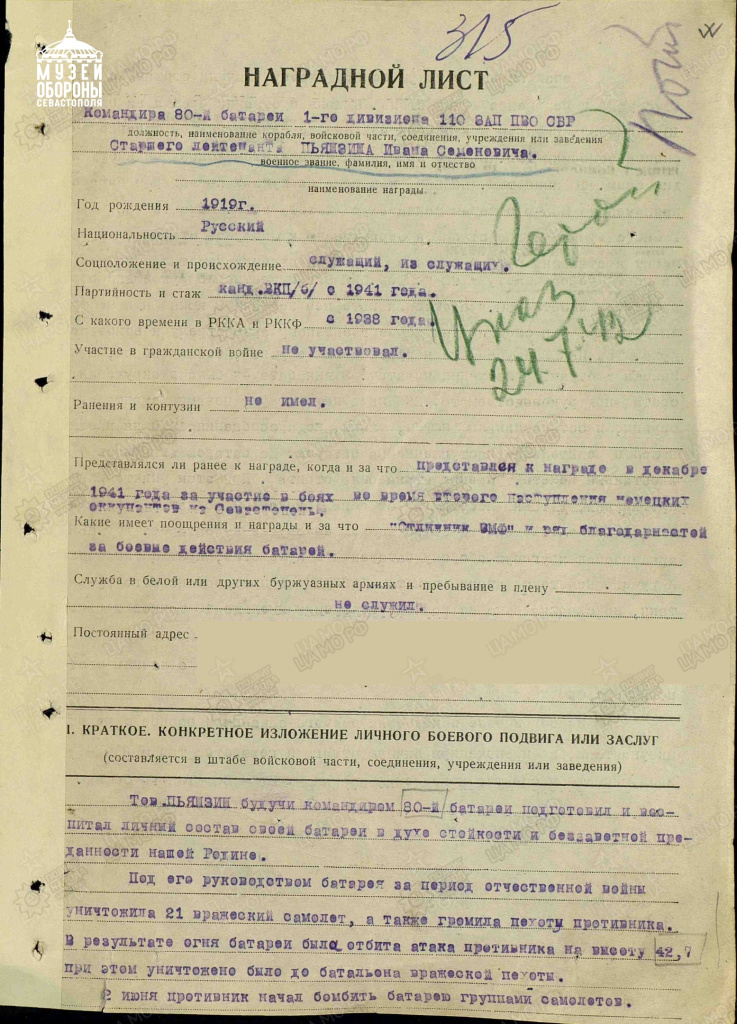 МУЗЕЙ
ОБОРОНЫ
СЕВАСТОПОЛЯ
315
НАГРАДНОЙ ЛИСТ
Командира 80-й батареи 1-го дивизиона 110 ЗАП ПВО СВР
должность, наименование корабля, войсковой части, соединения, учреждения или заведения
Старшего лейтенанта ПЬЯНЗИНА Ивана Семеновича.
военное звание, фамилия, имя и отчество
наименование награды
Герой
Указ
24.7.42
Год рождения 1919г.
Национальность Русский
Соцположение и происхождение служащий, из служащих.
Партийность и стаж канд.ВКП/б/ с 1941 года.
С какого времени в РККА и РККФ с 1938 года.
Участие в гражданской войне не участвовал.
Ранения и контузии не имел.
Представлялся ли ранее к награде, когда и за что представлся к награде в декабре
1941 года за участие в боях во время второго наступления немецких
оккупантов на Севастополь.
Какие имеет поощрения и награды и за что "Отличник ВМФ" и ряд благодарностей
за боевые действия батарей.
Служба в белой или других буржуазных армиях и пребывание в плену
не служил.
Постоянный адрес
I. КРАТКОЕ. КОНКРЕТНОЕ ИЗЛОЖЕНИЕ ЛИЧНОГО БОЕВОГО ПОДВИГА ИЛИ ЗАСЛУГ
(составляется в штабе войсковой части, соединения, учреждения или заведения)
Тов.ПЬЯНЗИН будучи командиром 80-й батареи подготовил и вос-
питал личный состав своей батареи в духе стойкости и беззаветной пре-
данности нашей Родине.
Под его руководством батарея за период отчественной войны
уничтожила 21 вражеский самолет, а также громила пехоты противника.
В результате огня батареи была отбита атака противника на высоту 42,7
при этом уничтожено было до батальона вражеской пехоты.
2 июня противник начал бомбить батарею группами самолетов.